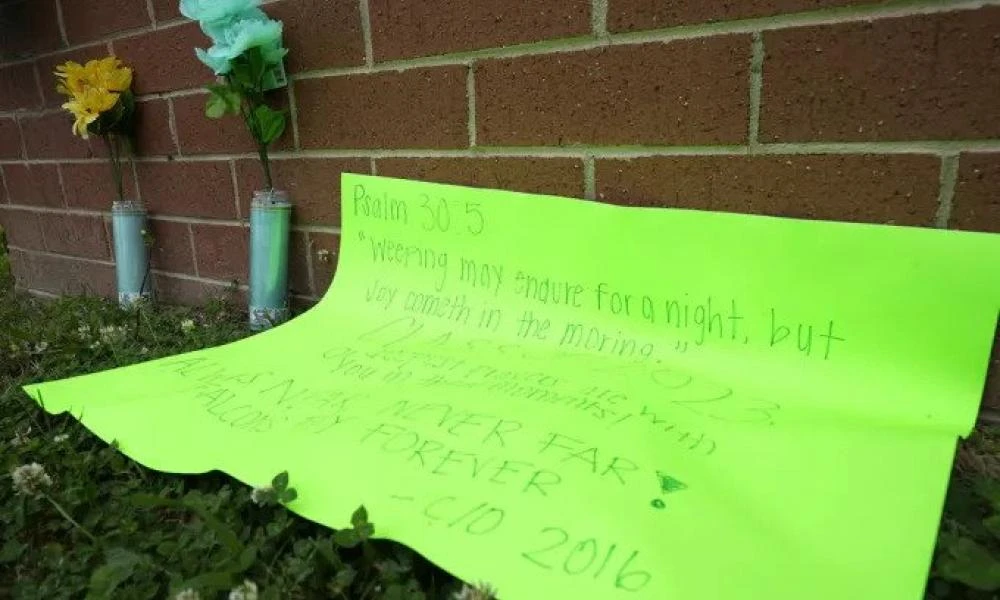 Psalm 30:5
"Weeping may endure for a night, but
Joy cometh in the moring."
2023.
deepest prayers are with
you in
ALWAYS NEAR NEVER FAR!
FALCONS FLY FOREVER
-C/O 2016